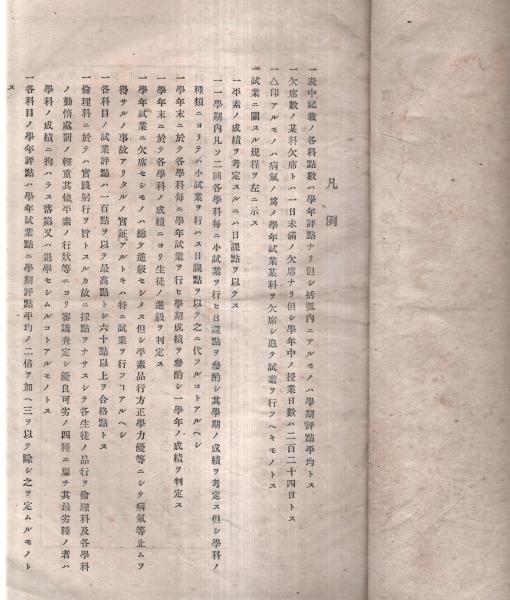 凡例
一表中記載ノ各科點數ハ學年評點ナリ但シ括弧內ニアルモノハ學期評點平均トス
一欠席數ノ某科欠席トハ一日未滿ノ欠席ナリ但シ學年中ノ授業日數ハ二百二十四日トス
一△印アルモノハ病氣ノ爲メ學年試業某科ヲ欠席シ追テ試業ヲ行フヘキモノトス
一試業ニ關スル規程ヲ左ニ示ス
一平素ノ成績ヲ考定スルニハ日課點ヲ以テス
一一學期內凡ソ二回各學科每ニ小試業ヲ行ヒ日課點ヲ參酌シ其學期ノ成績ヲ考定ス但シ學科ノ
種類ニヨリテハ小試業ヲ行ハス日課點ヲ以テ之ニ代フルコトアルヘシ
一學年末ニ於テ各學科每ニ學年試業ヲ行ヒ學期成績ヲ參酌シ一學年ノ成績ヲ判定ス
一學年末ニ於テ各學科ノ成績ニヨリ生徒ノ進級ヲ判定ス
一學年試業ニ欠席セシモノハ總テ進級セシメス但シ平素品行方正學力優等ニシテ病氣等止ムヲ
得サルノ事故アリタルノ實証アルトキハ特ニ試業ヲ行フヿアルヘシ
一各科目ノ試業評點ハ一百點ヲ以テ最高點トシ六十點以上ヲ合格點トス
一倫理科ニ於テハ實踐躬行ヲ旨トスルカ故ニ採點ヲナサスシテ各生徒ノ品行ヲ倫理科及各學科
ノ勤惰處罰ノ輕重其他平素ノ行狀等ニヨリ審議査定シ優良可劣ノ四種ニ別チ其最劣種ノ者ハ
學科ノ成績ニ拘ハラス落第又ハ退學セシムルコトアルモノトス
一各科目ノ學年評點ハ學年試業點ニ學期評點平均ノ二倍ヲ加ヘ三ヲ以テ除シ之ヲ定ムルモノト
ス